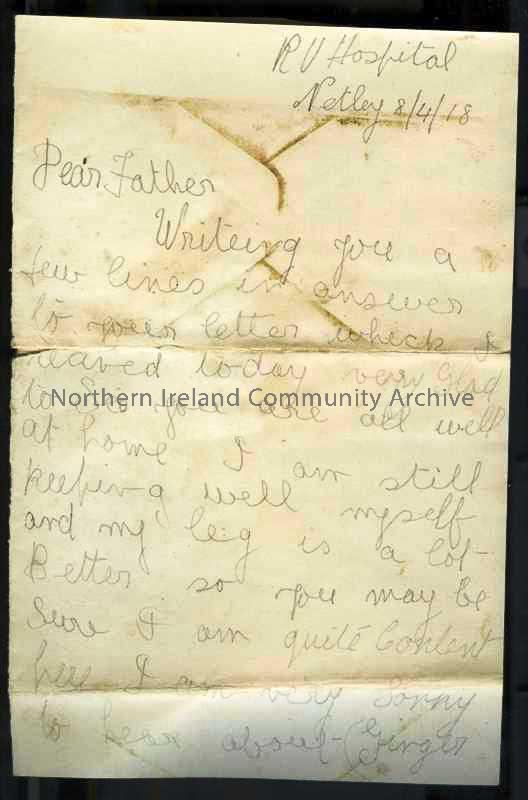 RV Hospital
Netley 8/4/18
Dear Father
Writeing you a
few lines in answer
to your letter which I
reaved today very Glad
Northern Ireland Community Archive
to See you are all well
at home I am still
keeping well myself
and my leg is a lot
Better so you may be
Sure I am quite Content
here I am very Sorry
to hear about (Ginger